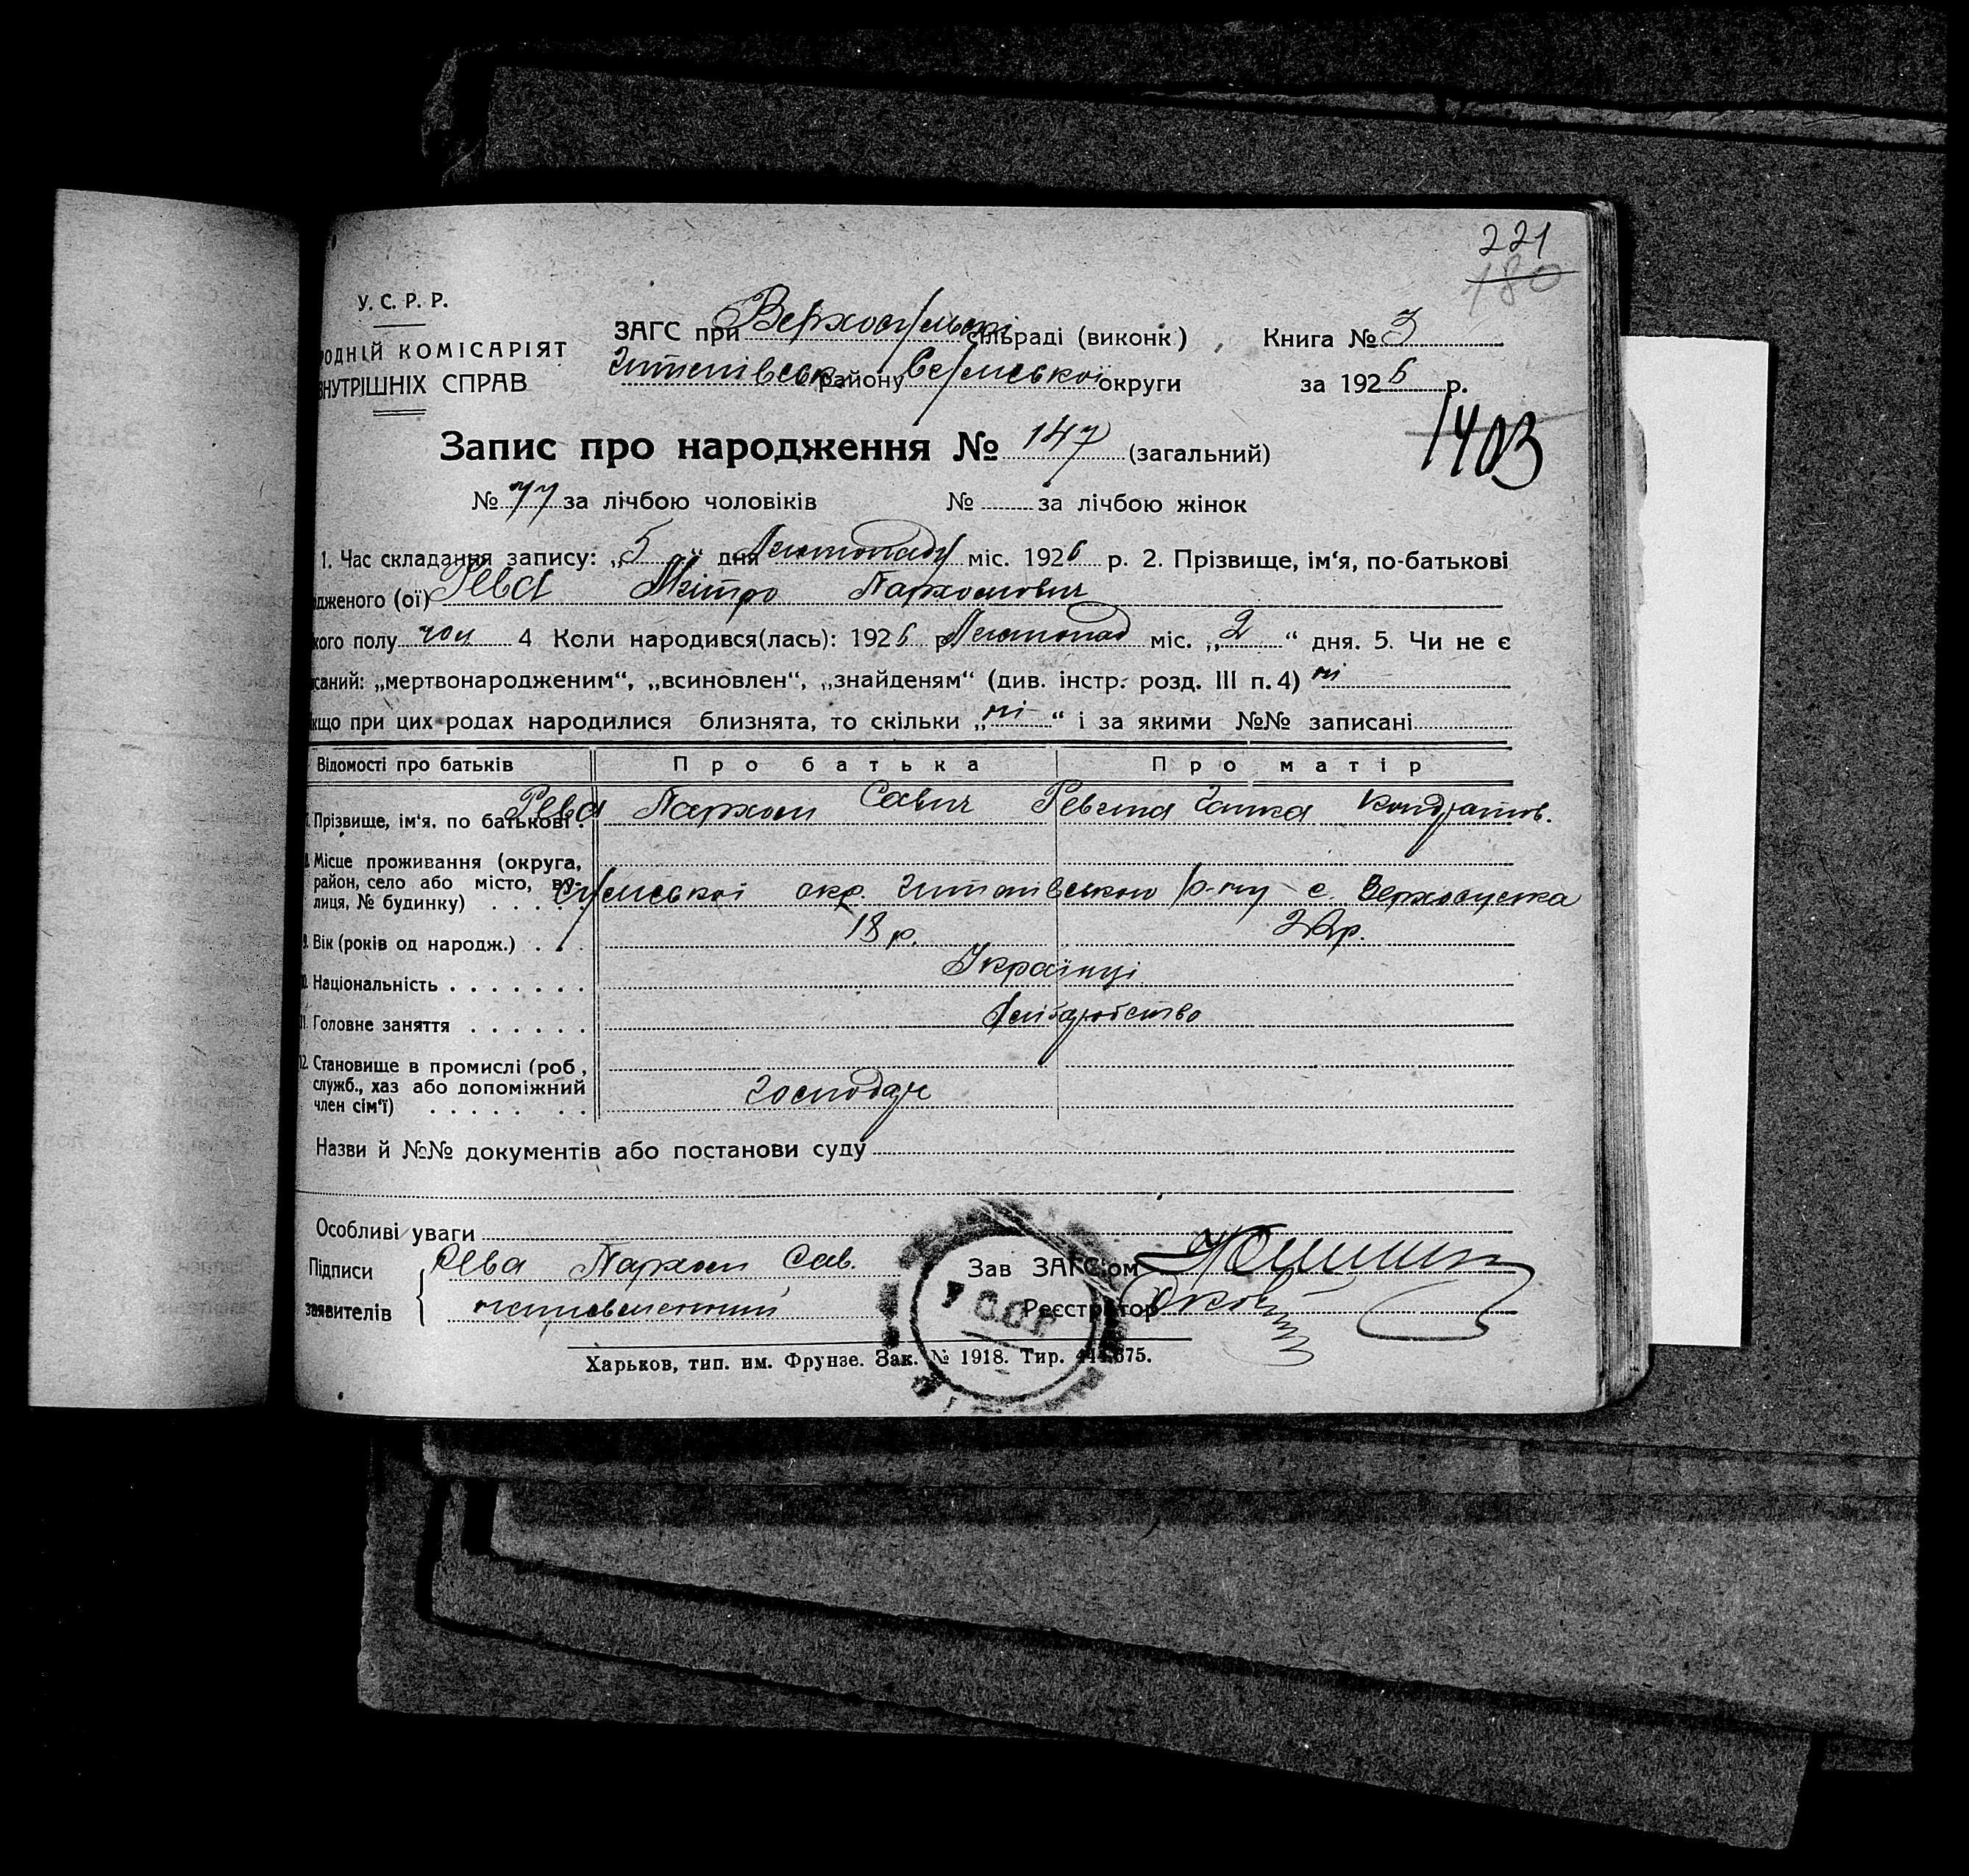 221
180
У. С. Р. Р.
РОДНІЙ КОМІСАРІЯТ
ВНУТРІШНІХ СПРАВ
ЗАГС при Верхосульск сільраді (виконк) Книга № 3
Штепівськ району Сумської округи за 1926 р.
1403
Запис про народження № 147 (загальний)
№ 77 за лічбою чоловіків № за лічбою жінок
1. Час складання запису: „5“ дня Листопаду міс. 1926 р. 2. Прізвище, ім‘я, по-батькові
дженого (ої) Рева Мітро Пархомович
кого полу чол 4 Коли народився(лась): 1926 р Листопад міс. „2“ дня. 5. Чи не є
исаний: „мертвонародженим“, „всиновлен“, „знайденям“ (див. інстр. розд. III п. 4) ні
кщо при цих родах народилися близнята, то скільки „ні“ і за якими №№ записані
Відомості про батьків Про батька Про матір
Прізвище, ім‘я. по батькові. Рева Пархом Савич Ревина Ганна Кондратов.
8. Місце проживання (округа,
район, село або місто, ву-
лиця, № будинку) Сумської окр. Штепівського р-ну с. Верхосулка
9. Вік (років од народж.) 18 р. 22р.
10. Національність Українці
11. Головне заняття Хліборобство
12. Становище в промислі (роб,
служб., хаз або допоміжний
член сім‘ї) Господар
Назви й №№ документів або постанови суду
Особливі уваги
Підписи Рева Пархом Сав. Зав ЗАГС‘ом
заявителів неписьменний Реєстратор
У.С.С.Р.
Харьков, тип. им. Фрунзе. Зак. № 1918. Тир. 444.675.